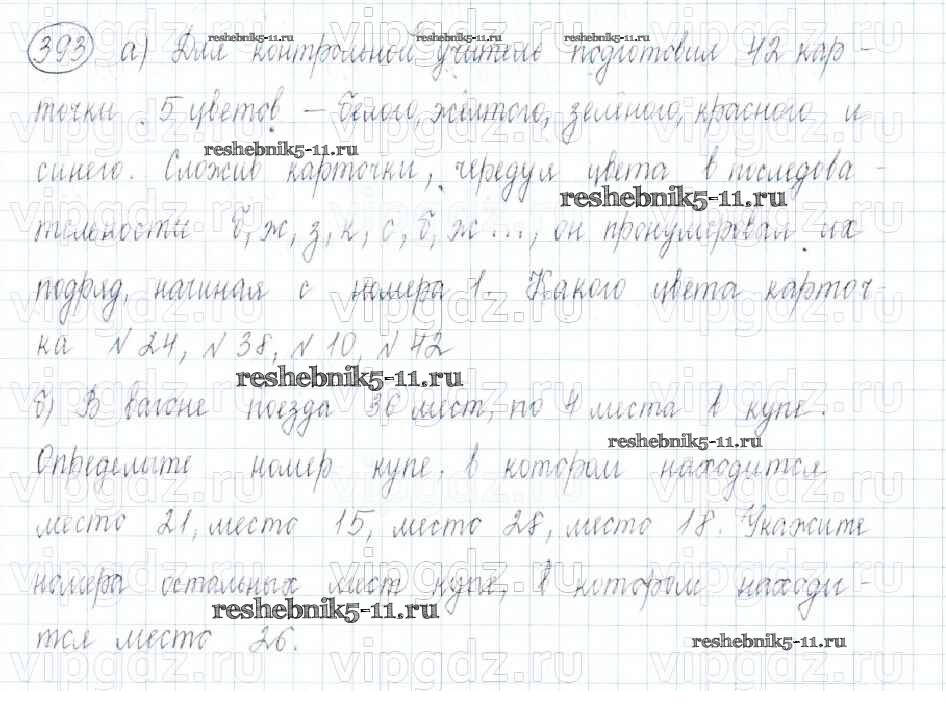 393 а) Для контрольной учитель подготовил 42 кар-
точки. 5 цветов – белого, жёлтого, зелёного, красного и
синего. Сложив карточки, чередуя цвета в последова-
тельности б, ж, з, к, с, б, ж ..., он пронумеровал их
подряд, начиная с номера 1. Какого цвета карточ-
ка №24, №38, №10, №42
б) В вагоне поезда 36 мест, по 4 места в купе.
Определите номер купе. в котором находится
место 21, место 15, место 28, место 18. Укажите
номера остальных мест купе, в котором находи-
тся место 26.
reshebnik5-11.ru
reshebnik5-11.ru
reshebnik5-11.ru
reshebnik5-11.ru
reshebnik5-11.ru
reshebnik5-11.ru
reshebnik5-11.ru
reshebnik5-11.ru
reshebnik5-11.ru
vipgdz.ru